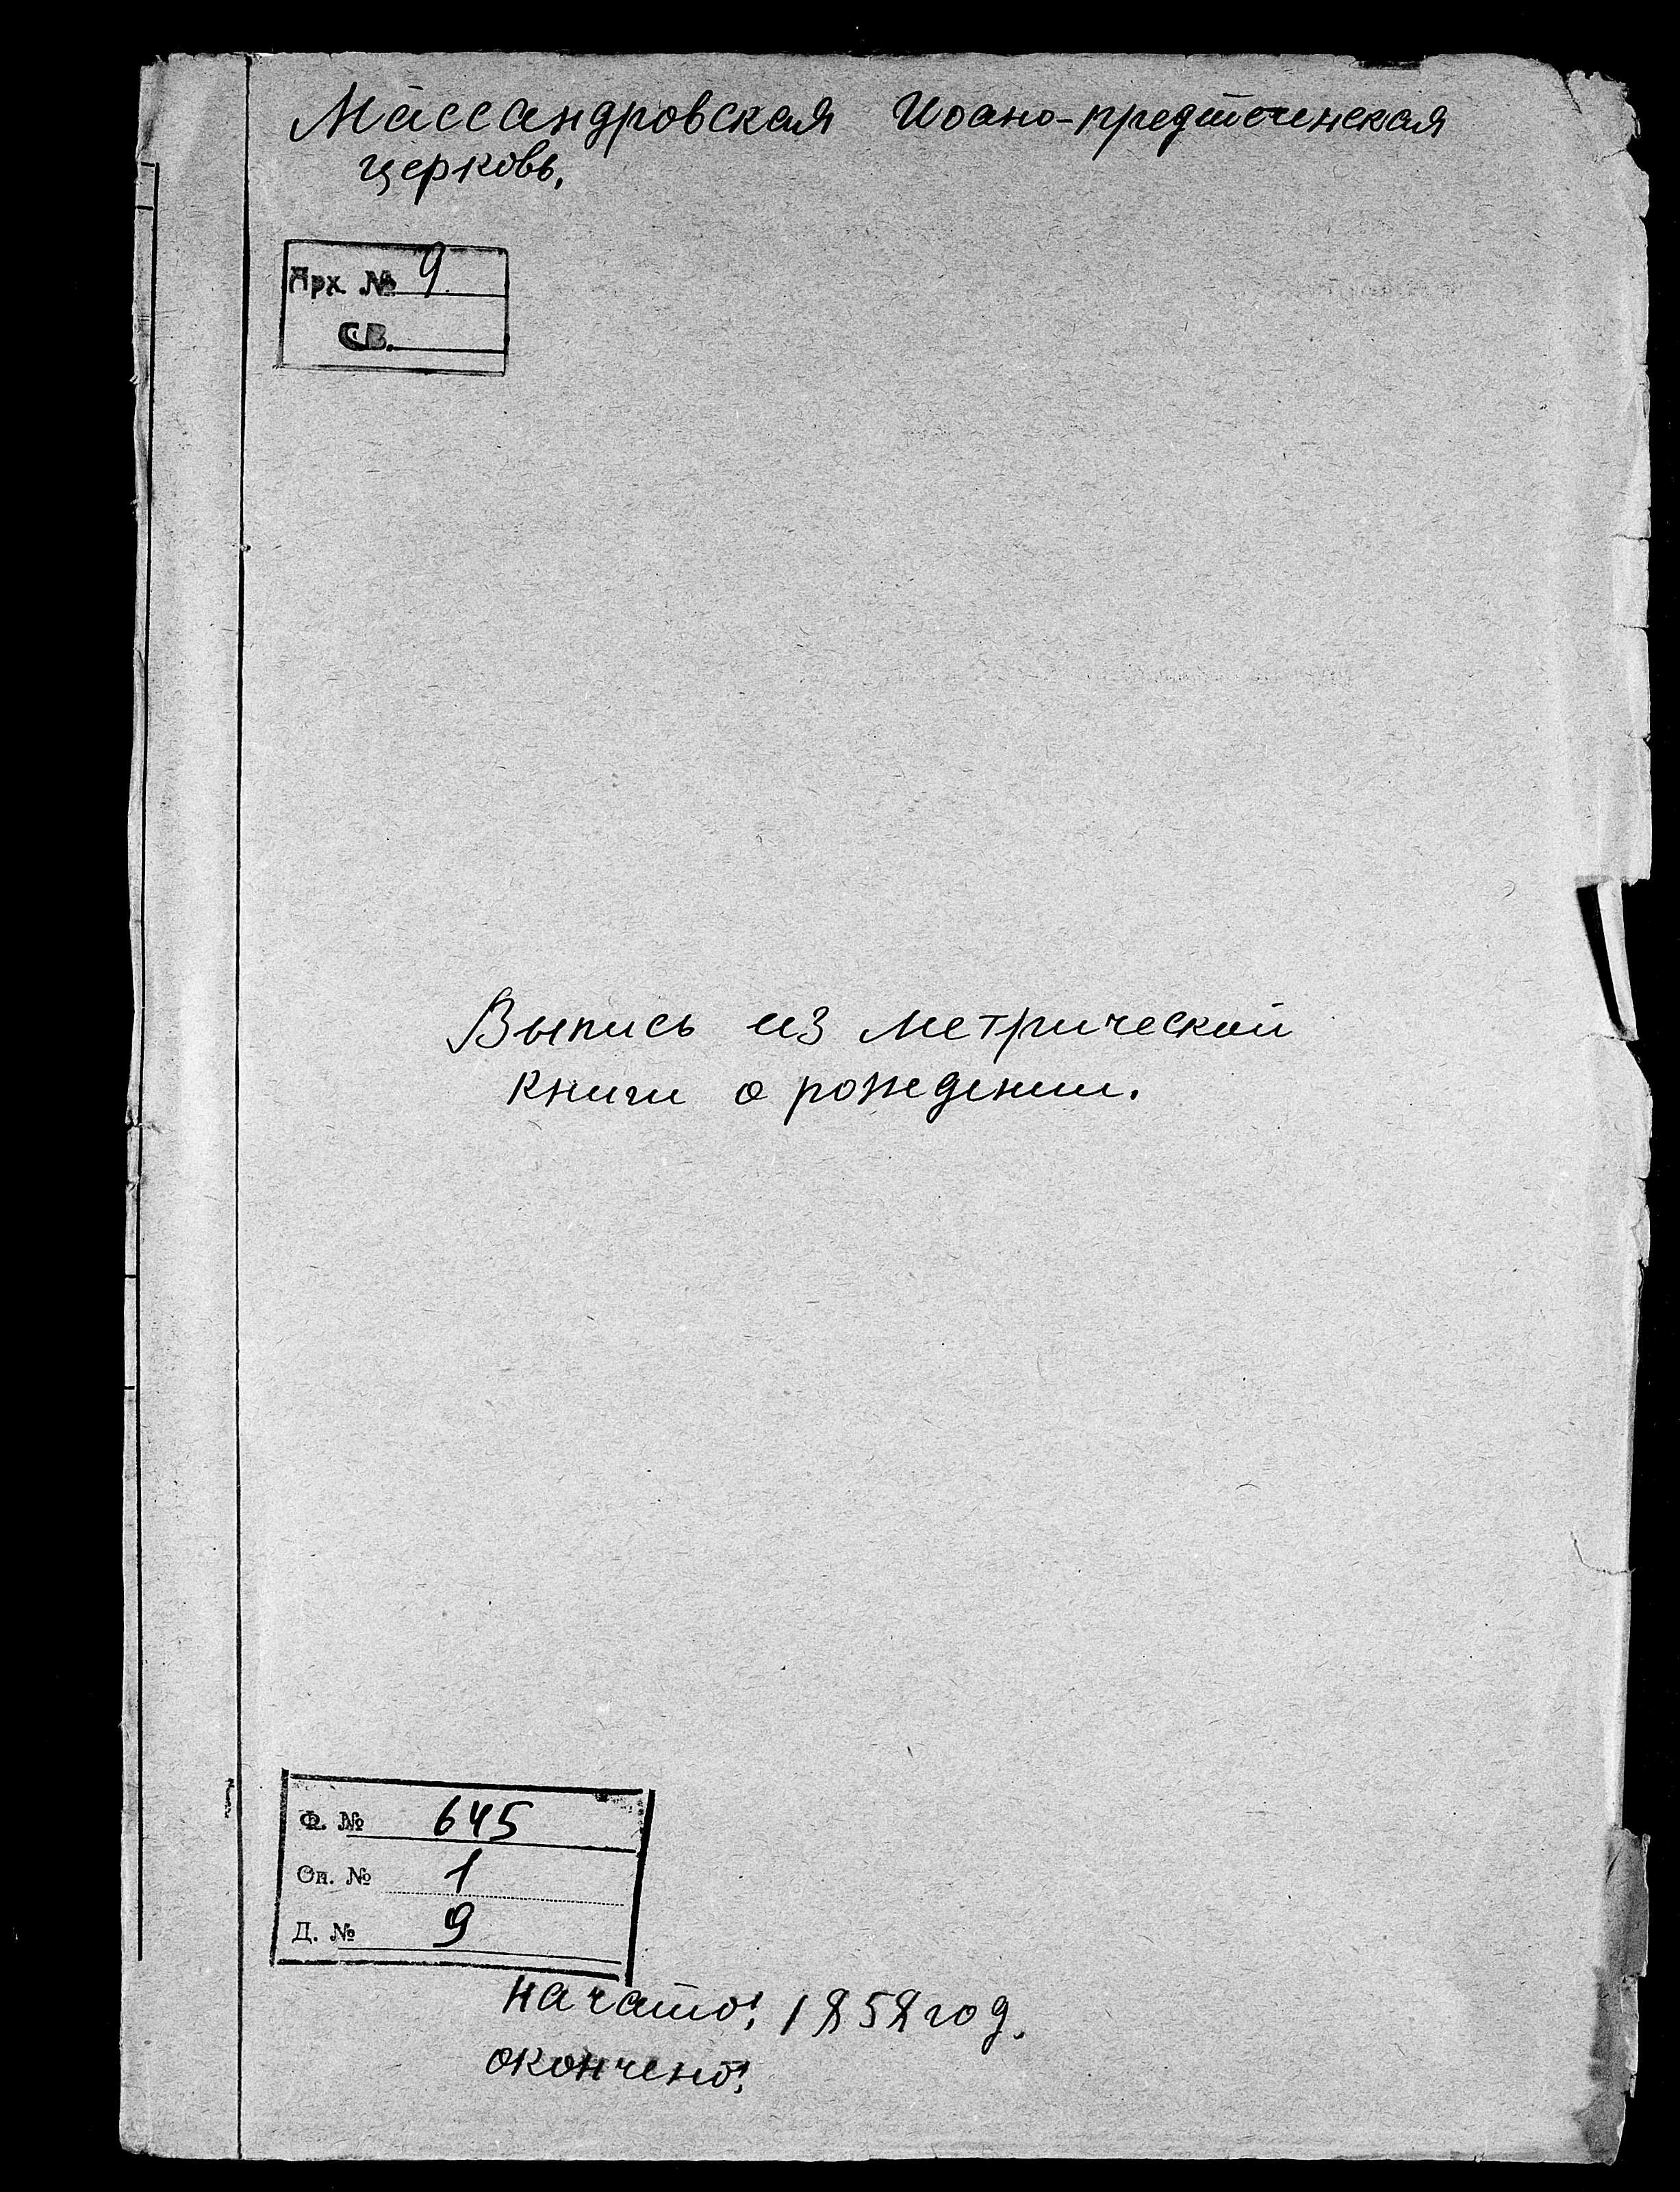 Массандровская Иоано-предтеченская
церковь.
Арх. № 9
СВ.
Выпись из метрической
книги о рождении.
Ф. № 645
Оп. № 1
Д. № 9
начато: 1858 год.
окончено: